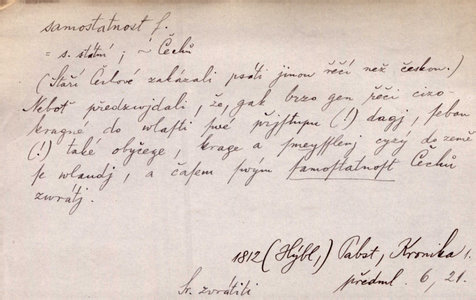 samostatnost f.
= s. státní ; ~ Čechů
(Staří Čechové zakázali psáti jinou řečí než českou.)
Neboť předzwjdali, že, gak brzo gen řeči cizo-
kragné do wlasti swé přjstupu (!) dagj, sebau
(!) také obyčege, krage a smeyšlenj cyzý do země
se wlaudj, a časem swým samostatnost Čechů
zwrátj.
1812 (Hýbl,) Pabst, Kronika 1.
předml. 6, 21.
Sr. zvrátiti